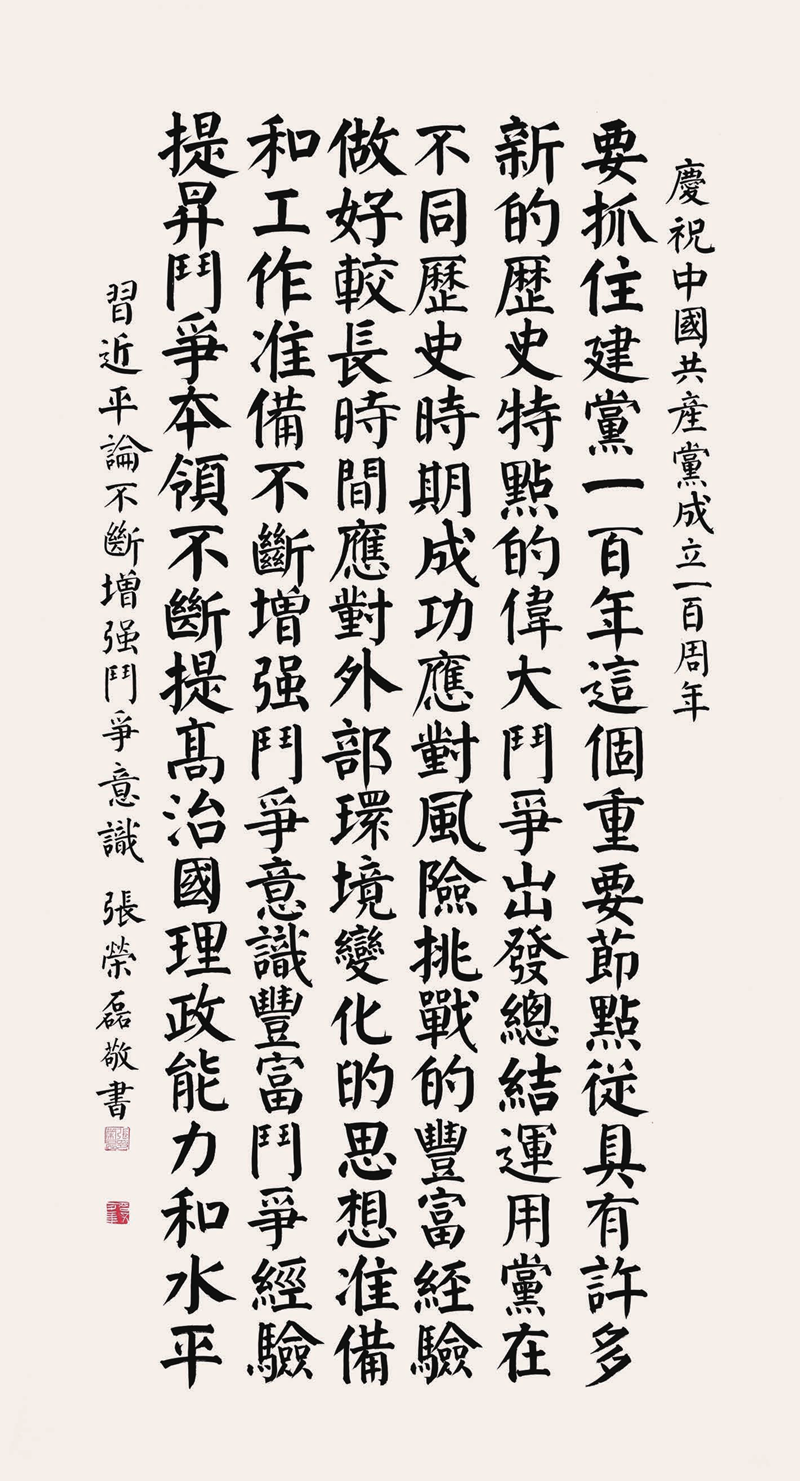 慶祝中國共產黨成立一百周年
要抓住建黨一百年這個重要節點從具有許多
新的歷史特點的偉大鬥爭出發總結運用黨在
不同歷史時期成功應對風險挑戰的豐富經驗
做好較長時間應對外部環境變化的思想准備
和工作准備不斷增强鬥爭意識豐富鬥爭經驗
提昇鬥爭本領不斷提高治國理政能力和水平
習近平論不斷增强鬥爭意識 張榮磊敬書